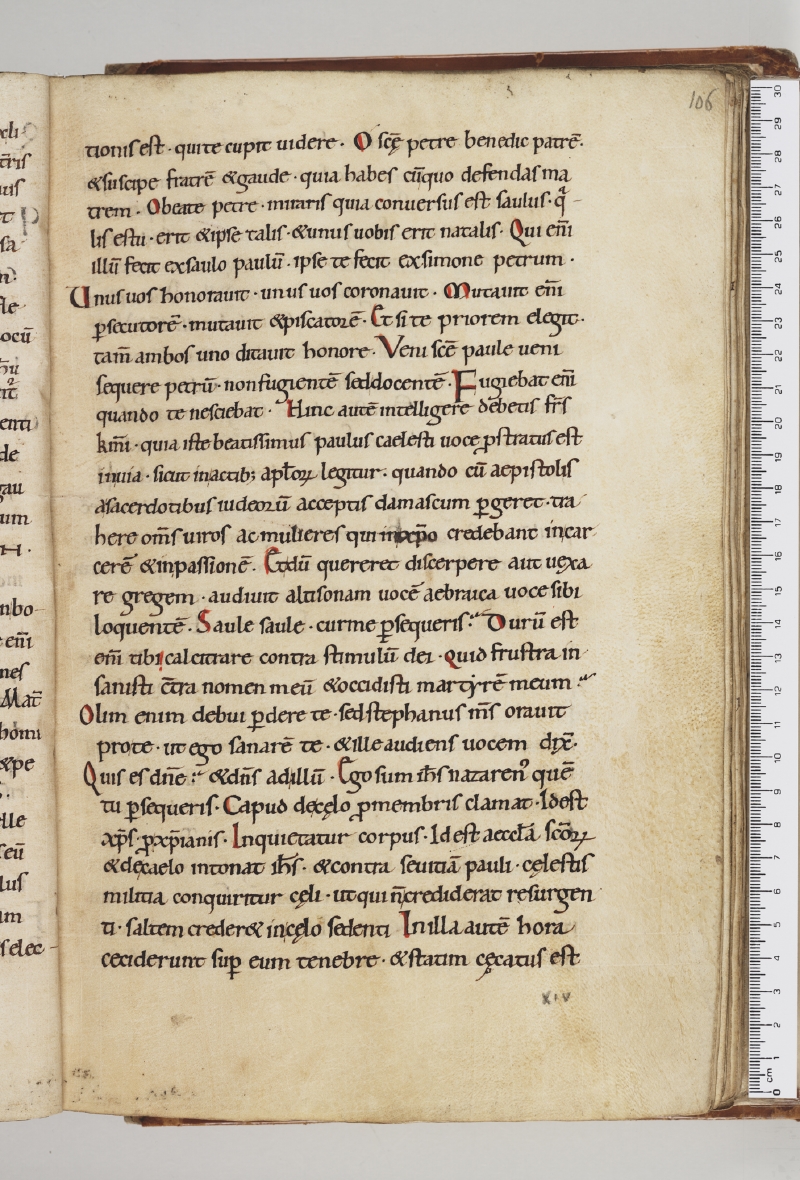 106
tionis est · qui te cupit uidere · O scẽ petre benedic patrẽ·
& suscipe fratrẽ & gaude · quia habes cũ quo defendas ma
trem · O beate petre · miraris quia conuersus est saulus · q̃
lis es tu · erit & ipse talis · & unus uobis erit natalis · Qui eni
illũ fecit ex saulo paulũ · ipse te fecit ex simone petrum ·
Unus uos honorauit · unus uos coronauit · Mutauit em̃
p̱secutorẽ · mutauit & piscatorẽ · Et si te priorem elegit ·
tam̃ ambos uno ditauit honore · Veni scẽ paule ueni
sequere petrũ · non fugientẽ sed docentẽ · Fugiebat em̃
quando te nesciebat · Hinc autẽ intelligere debetis fr̃s
km̃i · quia iste beatissimus paulus caelesti uoce p̱stratus est
in uia · sicut in actib; apl̃oꝝ legitur · quando cũ aepistolis
a sacerdotibus iudeorũ acceptis damascum p̱geret · tra
here om̃s uiros ac mulieres qui in xp̃o credebant in car
cerẽ & in passionẽ · Et dũ quereret discerpere aut uexa
re gregem · audiuit altisonam uocẽ aebraica uoce sibi
loquentẽ · Saule saule · cur me p̱sequeris? Durũ est
em̃ tibi calcitrare contra stimulũ dei · quid frustra in
sanisti c̃tra nomen meũ & occidisti martyrẽ meum?
Olim enim debui p̱dere te · sed stephanus m̃s orauit
pro te · ut ego sanarẽ te · & ille audiens uocem dix̃·
Quis es dñe? & dñs ad illũ · Ego sum ih̃s nazaren᾽ quẽ
tu p̱sequeris · Capud de cęlo ꝓ membris clamat · Id est
xp̃s · ꝓ xp̃ianis · Inquietatur corpus · Id est aeccl̃a sc̃oꝝ
& de caelo intonat ih̃s · & contra seuitiã pauli · cęlestis
militia conquiritur cęli · ut qui ñ crediderat resurgen
ti · saltem creder& in cęlo sedenti In illa autẽ hora
ceciderunt sup̱ eum tenebre · & statim cęcatus est
XIV